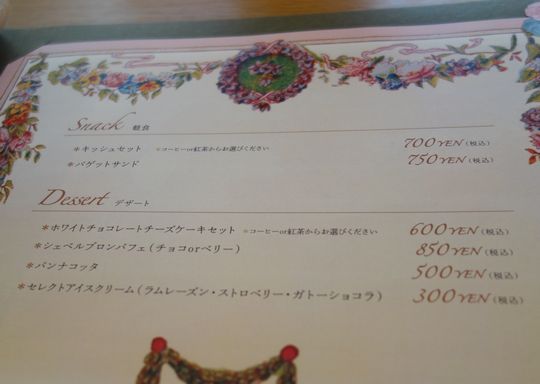 Snack 軽食
＊キッシュセット ＊コーヒーor紅茶からお選びください 700YEN(税込)
＊バゲットサンド 750YEN(税込)
Dessert デザート
＊ホワイトチョコレートチーズケーキセット ＊コーヒーor紅茶からお選びください 600YEN(税込)
＊シェベルブロンパフェ(チョコorベリー) 850YEN(税込)
＊パンナコッタ 500YEN(税込)
＊セレクトアイスクリーム(ラムレーズン・ストロベリー・ガトーショコラ) 300YEN(税込)